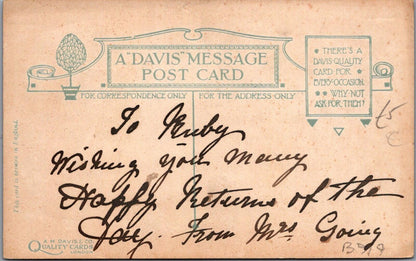 A "DAVIS" MESSAGE
POST CARD
THERE'S A
DAVIS-QUALITY
CARD FOR
EVERY-OCCASION.
WHY-NOT
ASK FOR THEM?
FOR CORRESPONDENCE ONLY
FOR THE ADDRESS-ONLY
To Ruby
Wishing you Many
Happy Returns of the
Day. From Mrs Going
A. M. DAVIS & CO.
QUALITY CARDS
LONDON